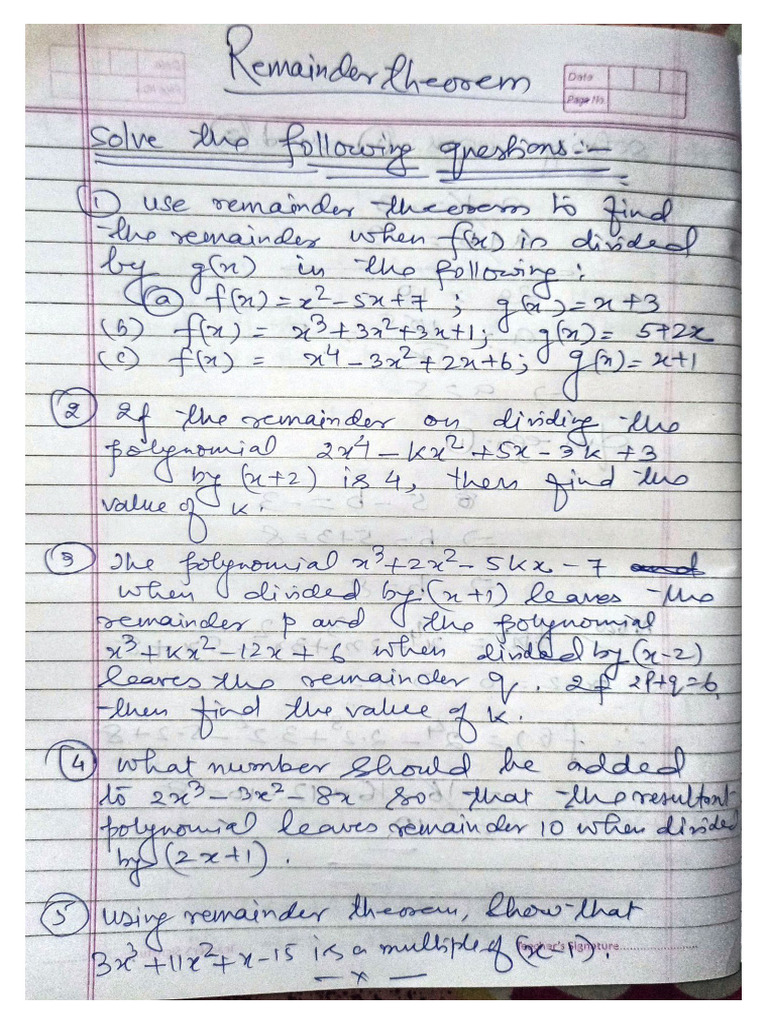 Remainder theorem
Date
Page No.
Solve the following questions:-
① use remainder theorem to find
the remainder when f(x) is divided
by g(x) in the following:
(a) f(x) = x² - 5x + 7 ; g(x) = x + 3
(b) f(x) = x³ + 3x² + 3x + 1; g(x) = 5 + 2x
(c) f(x) = x⁴ - 3x² + 2x + 6; g(x) = x + 1
② If the remainder on dividing the
polynomial 2x⁴ - kx² + 5x - 3k + 3
by (x + 2) is 4, then find the
value of k.
③ The polynomial x³ + 2x² - 5kx - 7
when divided by (x + 1) leaves the
remainder p and the polynomial
x³ + kx² - 12x + 6 when divided by (x - 2)
leaves the remainder q. If 2p + q = 6,
then find the value of k.
④ what number should be added
to 2x³ - 3x² - 8x so that the resultant
polynomial leaves remainder 10 when divided
by (2x + 1).
⑤ using remainder theorem, show that
3x³ + 11x² + x - 15 is a multiple of (x - 1).
Teacher's Signature
— x —